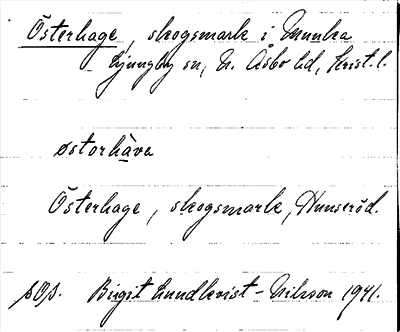 Österhage, skogsmark i Munka
Ljungby sn, N. Åsbo hd, Krist. l.
østorhàva
Österhage, skogsmark, Hunseröd.
sOs. Birgit Lundkvist-Nilsson 1941.